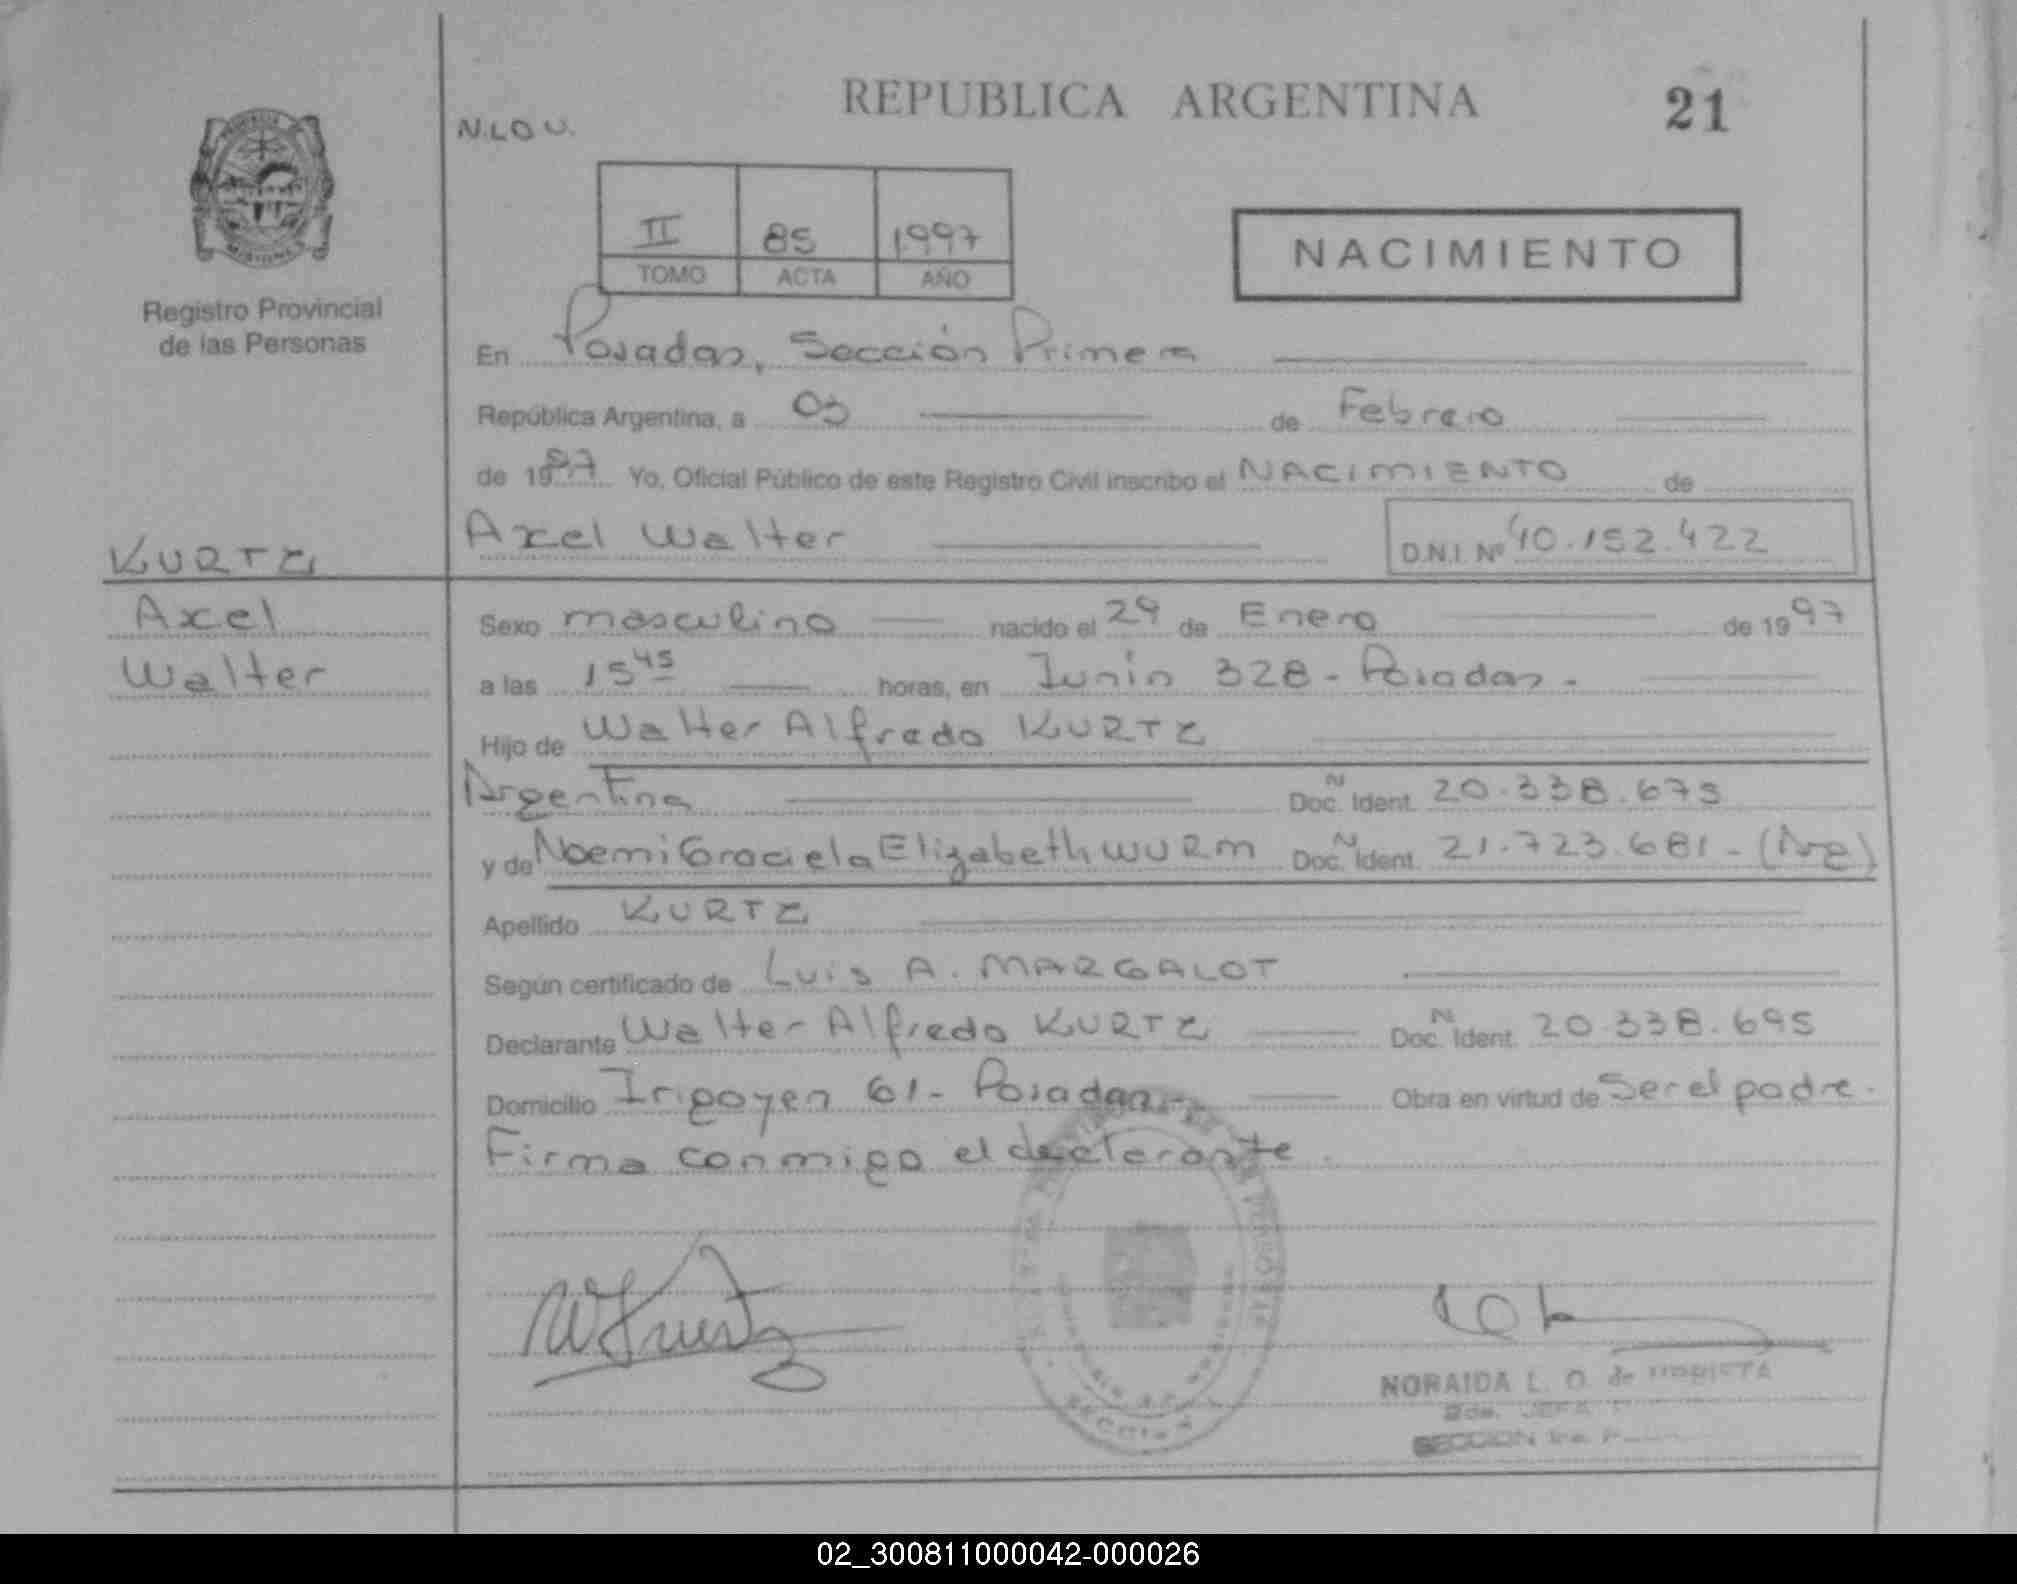 REPUBLICA ARGENTINA
21
N.LO U.
II 85 1997
TOMO ACTA AÑO
NACIMIENTO
Registro Provincial
de las Personas
En Posadas, Sección Primera
República Argentina, a 03 de Febrero
de 1997 Yo, Oficial Público de este Registro Civil inscribo el NACIMIENTO de
Axel Walter D.N.I. Nº 40.152.422
KURTZ
Axel
Walter
Sexo masculino nacido el 29 de Enero de 1997
a las 15 45 horas, en Junín 328 - Posadas -
Hijo de Walter Alfredo KURTZ
Argentina Doc. N Ident. 20.338.675
y de Noemi Graciela Elizabeth WURM Doc. N Ident. 21.723.681 - (Arg)
Apellido KURTZ
Según certificado de Luis A. MARGALOT
Declarante Walter Alfredo KURTZ Doc. N Ident. 20.338.695
Domicilio Irigoyen 61 - Posadas - Obra en virtud de Ser el padre.
Firma conmigo el declarante.
NORAIDA L. O. de
2da. JEFA
SECCION 1ra
02_300811000042-000026